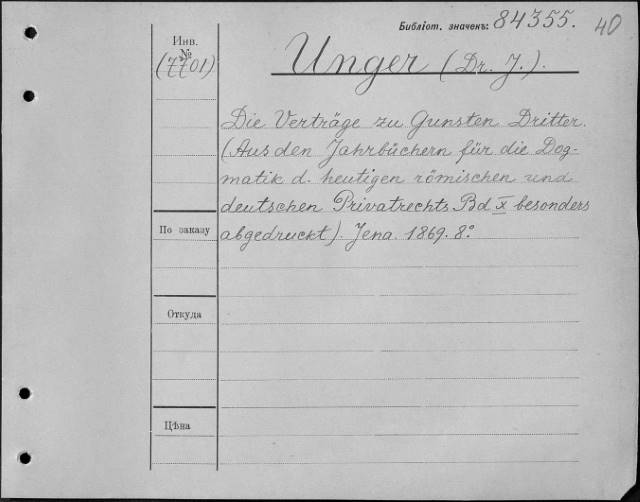 Библіот. значекъ: 84355. 40
Инв.
№
(7701)
Unger (Dr. J.).
Die Verträge zu Gunsten Dritter.
(Aus den Jahrbüchern für die Dog-
matik d. heutigen römischen und
deutschen Privatrechts. Bd X besonders
abgedruckt). Jena. 1869. 8º
По заказу
Откуда
Цѣна